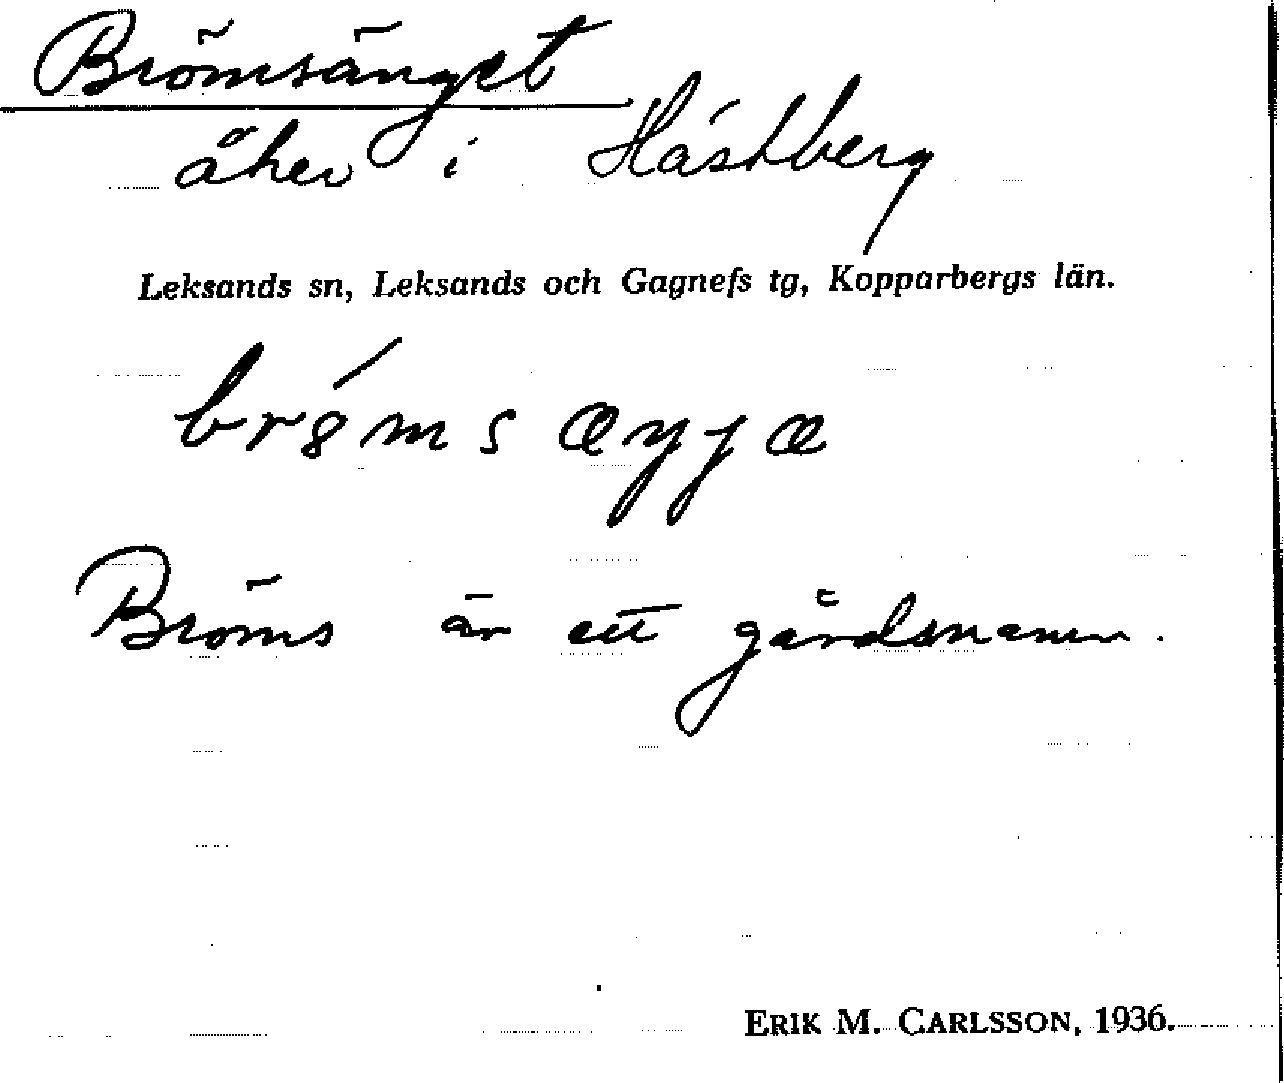 Brömsänget
åker i Hästberg
Leksands sn, Leksands och Gagnefs tg, Kopparbergs län.
Bröms är ett gårdsnamn.
ERIK M. CARLSSON, 1936.